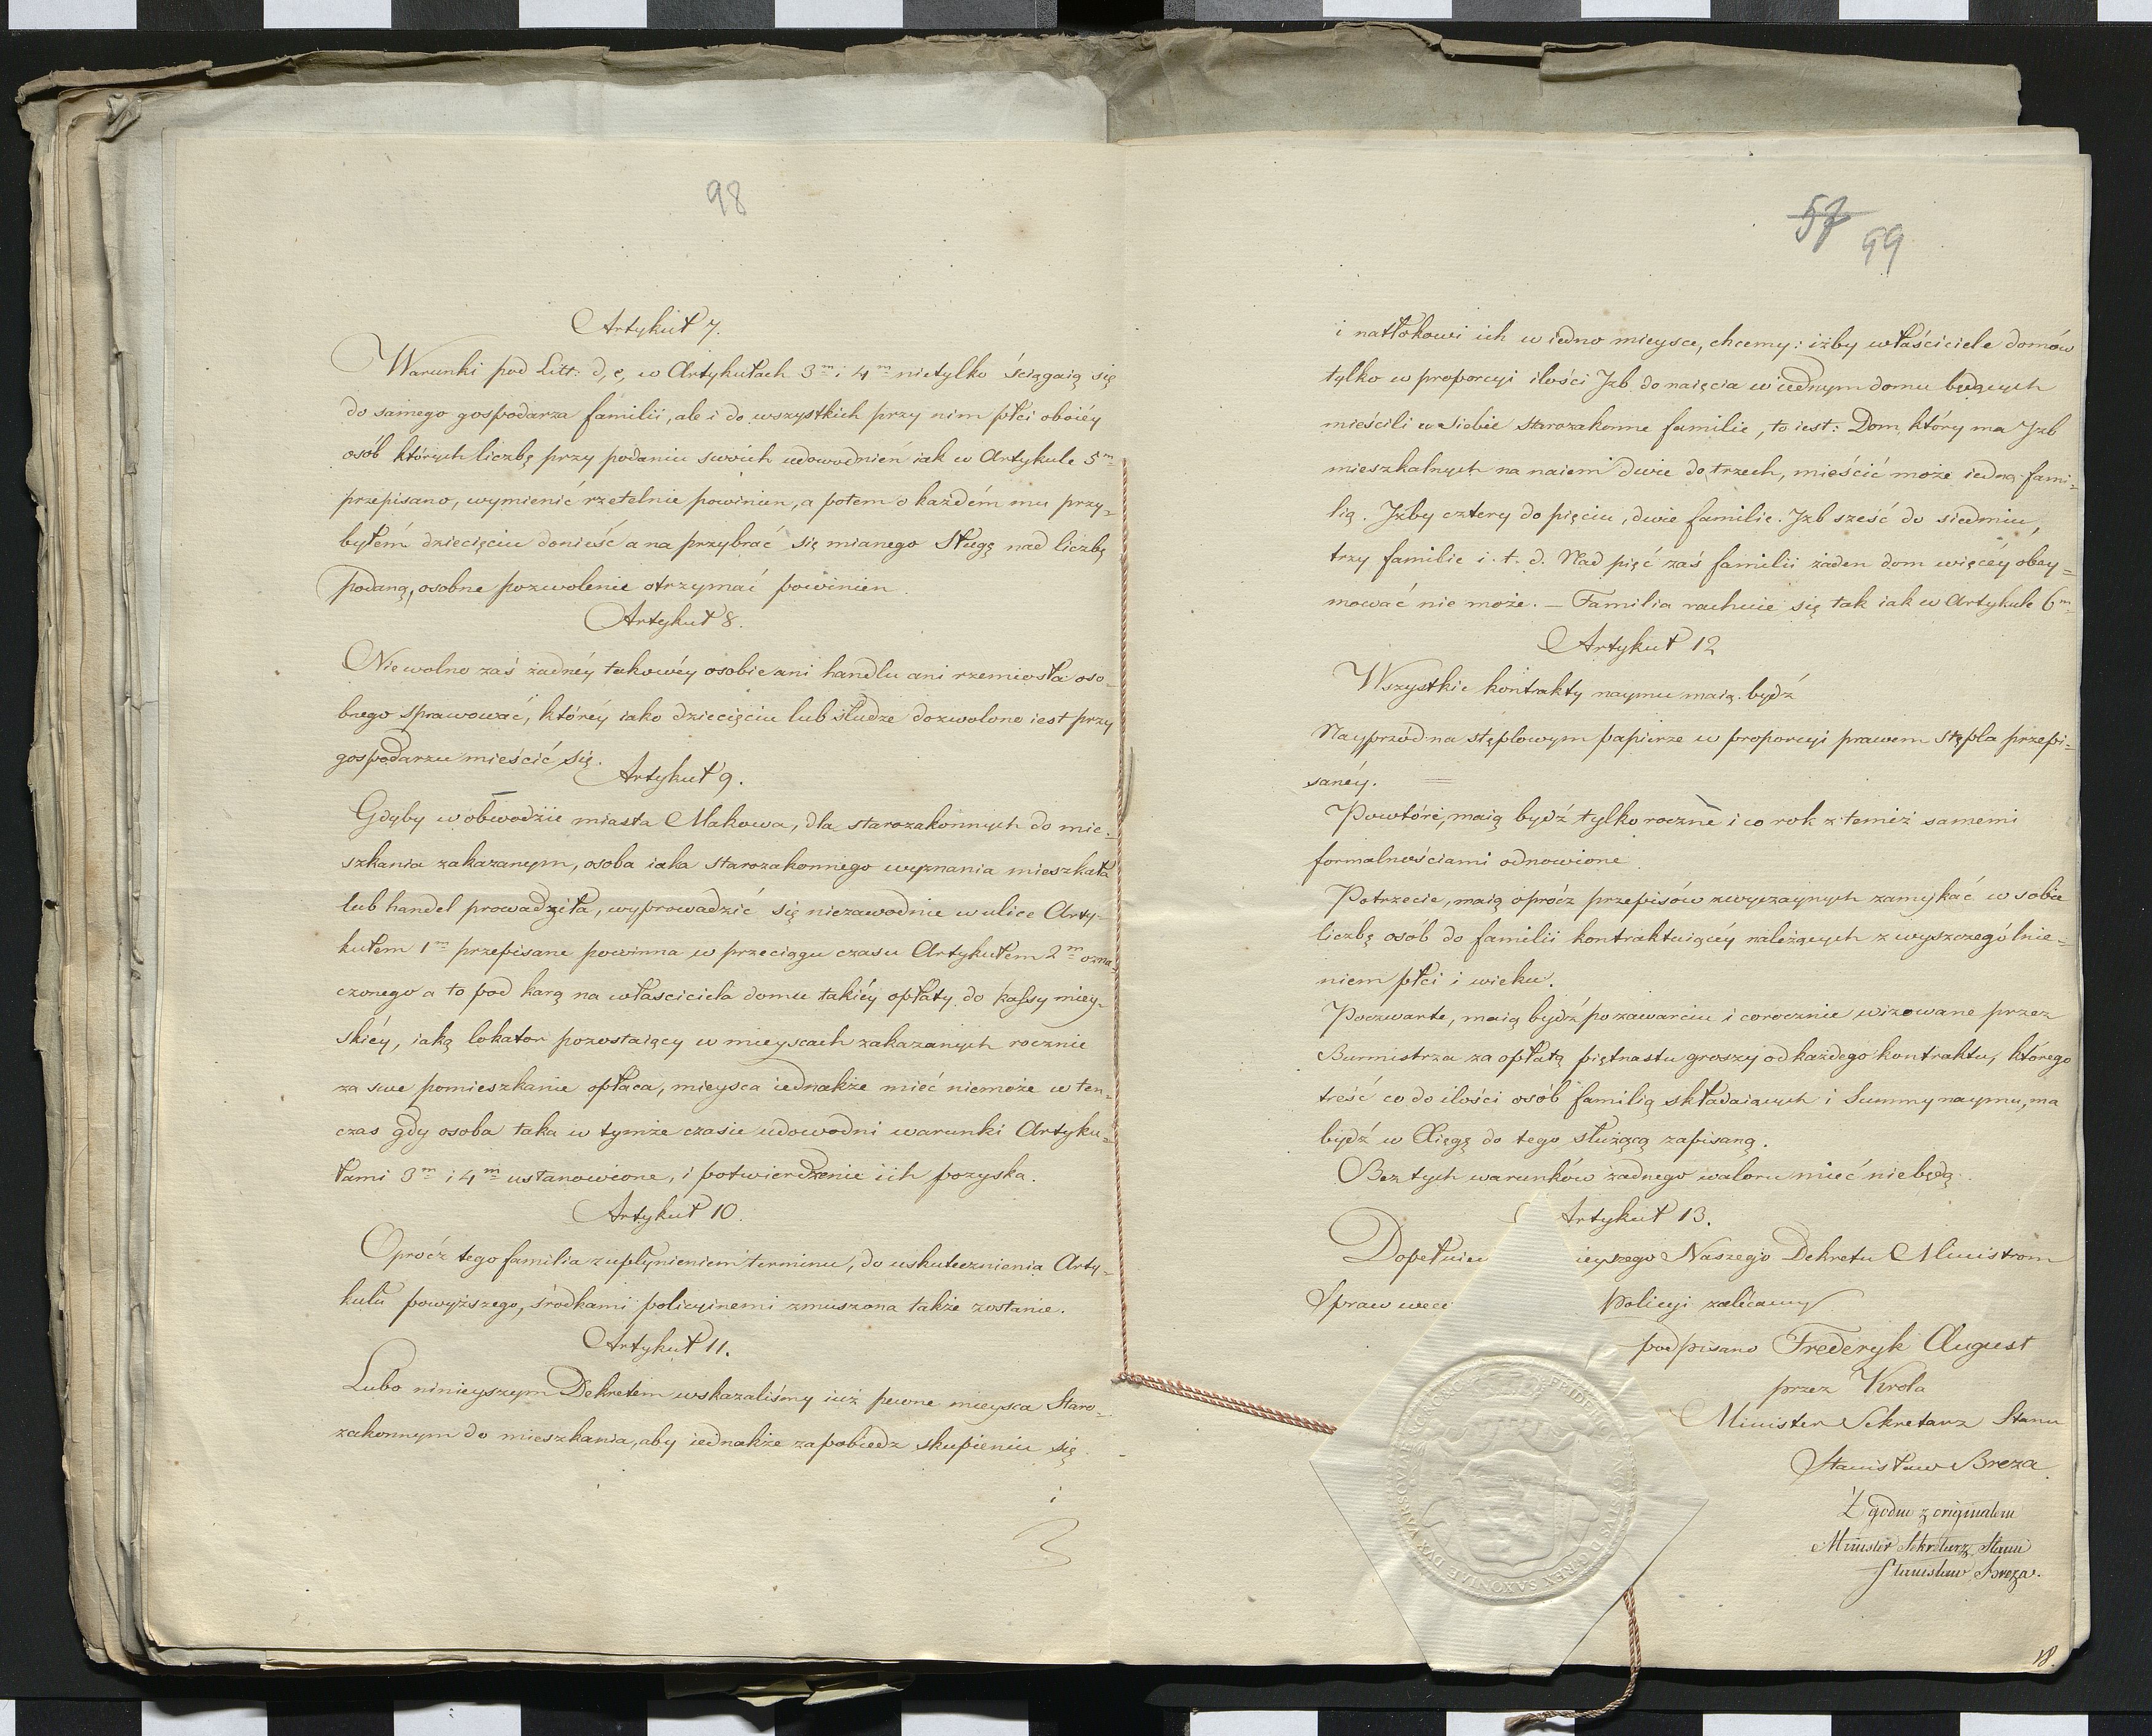 98
Artykuł 7.
Warunki pod Litt: d, e, w Artykułach 3m i 4m nietylko ściągaią się
do samego gospodarza familii, ale i do wszystkich przy nim płci oboiéy
osób których liczbę przy podaniu swoich udowodnień iak w Artykule 5m
przepisano, wymienić rzetelnie powinien, a potem o każdém mu przy=
byłém dziecięciu donieść a na przybrać się mianego Sługę nad liczbę
podaną, osobne pozwolenie otrzymać powinien.
Artykuł 8.
Niewolno zaś żadnéy takowéy osobie ani handlu ani rzemiosła oso=
bnego sprawować, któréy iako dziecięciu lub słudze dozwolono iest przy
gospodarzu mieścić się.
Artykuł 9.
Gdyby w obwodzie miasta Makowa, dla starozakonnych do mie=
szkania zakazanym, osoba iaka starozakonnego wyznania mieszkała
lub handel prowadziła, wyprowadzić się niezawodnie w ulice Arty=
kułem 1m przepisane powinna w przeciągu czasu Artykułem 2m ozna=
czonego a to pod karą na właściciela domu takiéy opłaty do kassy miey=
skiéy, iaką lokator pozostaiący w mieyscach zakazanych rocznie
za swe pomieszkanie opłaca, mieysca iednakże mieć niemoże w ten=
czas gdy osoba taka w tymże czasie udowodni warunki Artyku=
łami 3m i 4m ustanowione, i potwierdzenie ich pozyska.
Artykuł 10.
Oprócz tego familia z upłynieniem terminu, do uskutecznienia Arty=
kułu powyższego, środkami policyinemi zmuszona także zostanie.
Artykuł 11.
Lubo ninieyszym Dekretem wskazaliśmy iuż pewne mieysca Staro=
zakonnym do mieszkania, aby iednakże zapobiedz skupieniu się
i
57 99
i natłokowi ich w iedno mieysce, chcemy: iżby właściciele domów
tylko w proporcyi ilości Izb do naięcia w iednym domu będących
mieścili w Siebie starozakonne familie, to iest: Dom, który ma Izb
mieszkalnych na naiem dwie do trzech, mieścić może iedną fami=
lią. Izby cztery do pięciu, dwie familie. Izb sześć do siedmiu,
trzy familie i. t. d. Nad pięć zaś familii żaden dom więcéy obey=
mować nie może. _ Familia rachuie się tak iak w Artykule 6m
Artykuł 12
Wszystkie kontrakty naymu maią bydź
Nayprzód na stęplowym papierze w proporcyi prawem stępla przepi=
sanéy.
Powtóre, maią bydź tylko roczne i co rok z temiż samemi
formalnościami odnowione.
Potrzecie, maią oprócz przepisów zwyczaynych zamykać w sobie
liczbę osób do familii kontraktuiącéy należących z wyszczególnie=
niem płci i wieku.
Poczwarte, maią bydź po zawarciu i corocznie wizowane przez
Burmistrza za opłatą piętnastu groszy od każdego kontraktu, którego
treść co do ilości osób familią składaiących i Summy naymu, ma
bydź w Xięgę do tego służącą zapisaną.
Bez tych warunków żadnego waloru mieć niebędą.
Artykuł 13.
Dopełnien ieyszego Naszego Dekretu Ministrom
Spraw wew Policyi zalecamy
podpisano Frederyk August
przez Króla
Minister Sekretarz Stanu
Stanisław Breza
Zgodno z originałem
Minister Sekretarz Stanu
Stanisław Breza.
FRIDERIC AUGUSTUS D.G. REX SAXONIAE DUX VARSOVIAE
18.